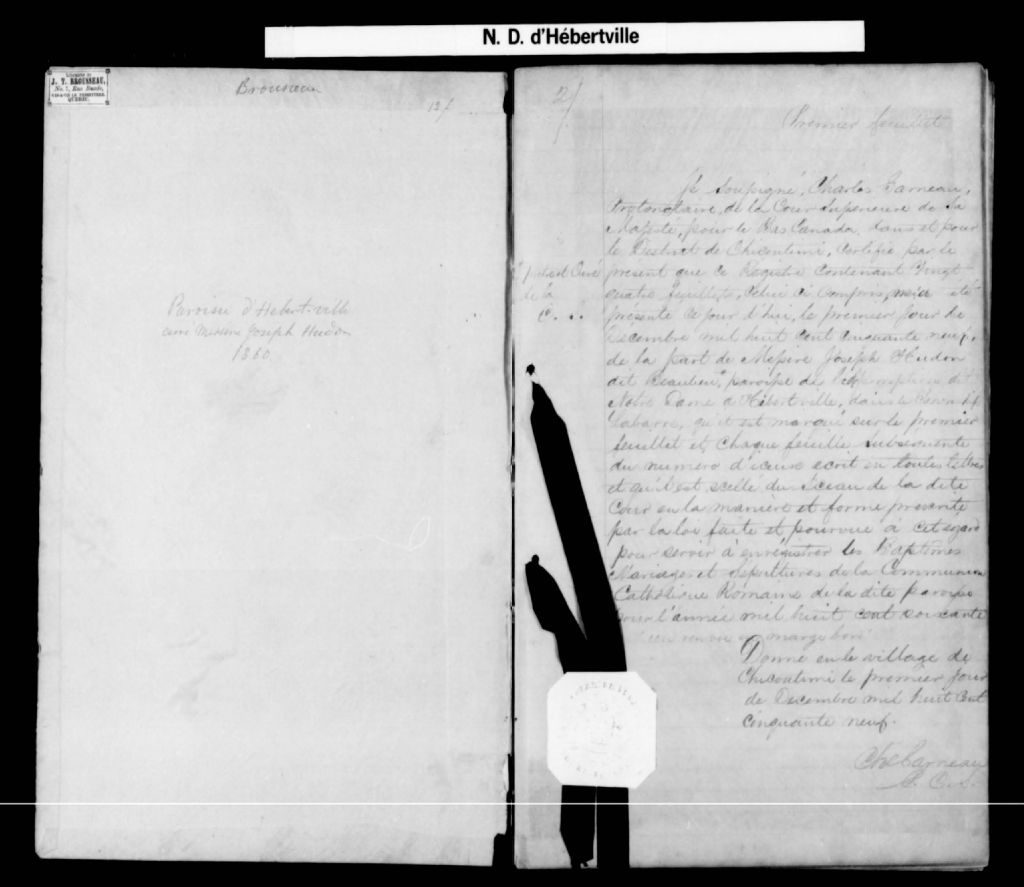 N. D. d'Hébertville
J. T. BROUSSEAU,
No. 7, Rue Buade,
QUÉBEC.
Brousseau
12f
Paroisse d'Hébert-ville
Messire Joseph Hudon
1860
2f
Premier feuillet
Je soussigné, Charles Garneau,
Protonotaire, de la Cour Supérieure de Sa
Majesté, pour le Bas Canada, dans et pour
le District de Chicoutimi, Certifie par le
présent que ce Régistre contenant Vingt
quatre feuillets, celui ci compris, m'a été
présenté ce jour d'hui, le premier jour de
Décembre mil huit cent cinquante neuf,
de la part de Messire Joseph Hudon
dit Beaulieu, paroisse de l'Assomption dit
Notre Dame d'Hébertville, dans le Canton
Labarre, qu'il est marqué sur le premier
feuillet et chaque feuille subséquente
du numero d'iceux écrit en toutes lettres
et qu'il est scellé du sceau de la dite
Cour en la manière et forme prescrite
par la loi faite et pourvue à cet égard
pour servir à enrégistrer les Baptêmes
Mariages et Sépultures de la Communion
Catholique Romaine de la dite paroisse
pour l'année mil huit cent soixante
un renvoi en marge bon
Curé
de la
C. . .
Donné en le village de
Chicoutimi le premier jour
de Décembre mil huit cent
cinquante neuf.
Chs Garneau
P. C. S.